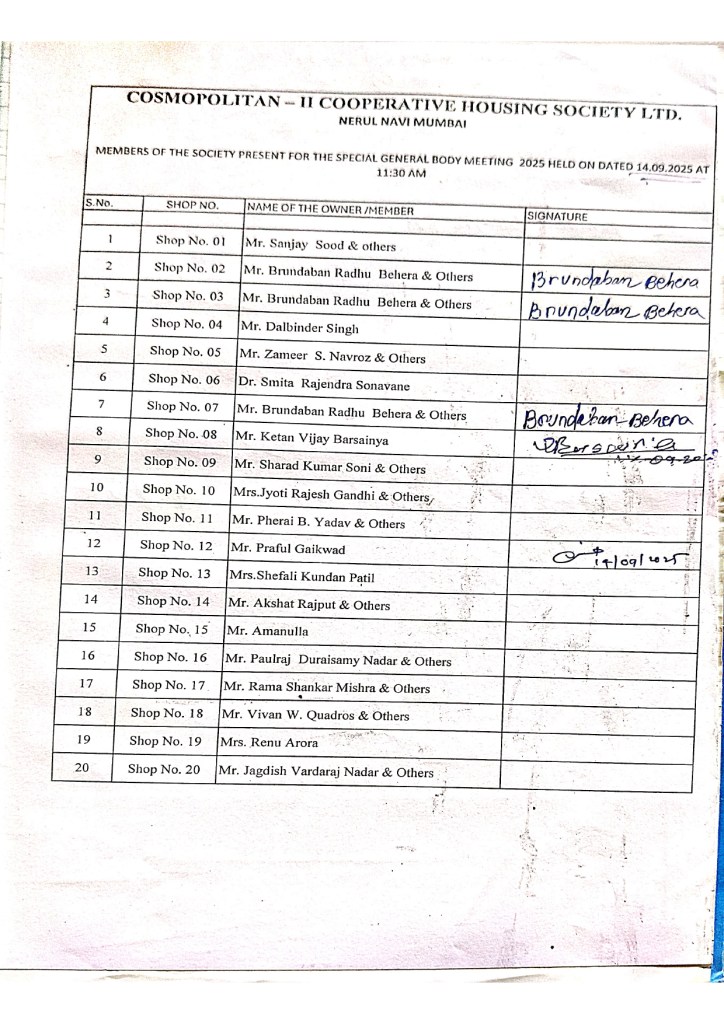 COSMOPOLITAN – II COOPERATIVE HOUSING SOCIETY LTD.
NERUL NAVI MUMBAI
MEMBERS OF THE SOCIETY PRESENT FOR THE SPECIAL GENERAL BODY MEETING 2025 HELD ON DATED 14.09.2025 AT
11:30 AM
S.No. SHOP NO. NAME OF THE OWNER /MEMBER SIGNATURE
1 Shop No. 01 Mr. Sanjay Sood & others
2 Shop No. 02 Mr. Brundaban Radhu Behera & Others Brundaban Behera
3 Shop No. 03 Mr. Brundaban Radhu Behera & Others Brundaban Behera
4 Shop No. 04 Mr. Dalbinder Singh
5 Shop No. 05 Mr. Zameer S. Navroz & Others
6 Shop No. 06 Dr. Smita Rajendra Sonavane
7 Shop No. 07 Mr. Brundaban Radhu Behera & Others Brundaban Behera
8 Shop No. 08 Mr. Ketan Vijay Barsainya
9 Shop No. 09 Mr. Sharad Kumar Soni & Others
10 Shop No. 10 Mrs.Jyoti Rajesh Gandhi & Others
11 Shop No. 11 Mr. Pherai B. Yadav & Others
12 Shop No. 12 Mr. Praful Gaikwad 14/09/2025
13 Shop No. 13 Mrs.Shefali Kundan Patil
14 Shop No. 14 Mr. Akshat Rajput & Others
15 Shop No. 15 Mr. Amanulla
16 Shop No. 16 Mr. Paulraj Duraisamy Nadar & Others
17 Shop No. 17 Mr. Rama Shankar Mishra & Others
18 Shop No. 18 Mr. Vivan W. Quadros & Others
19 Shop No. 19 Mrs. Renu Arora
20 Shop No. 20 Mr. Jagdish Vardaraj Nadar & Others